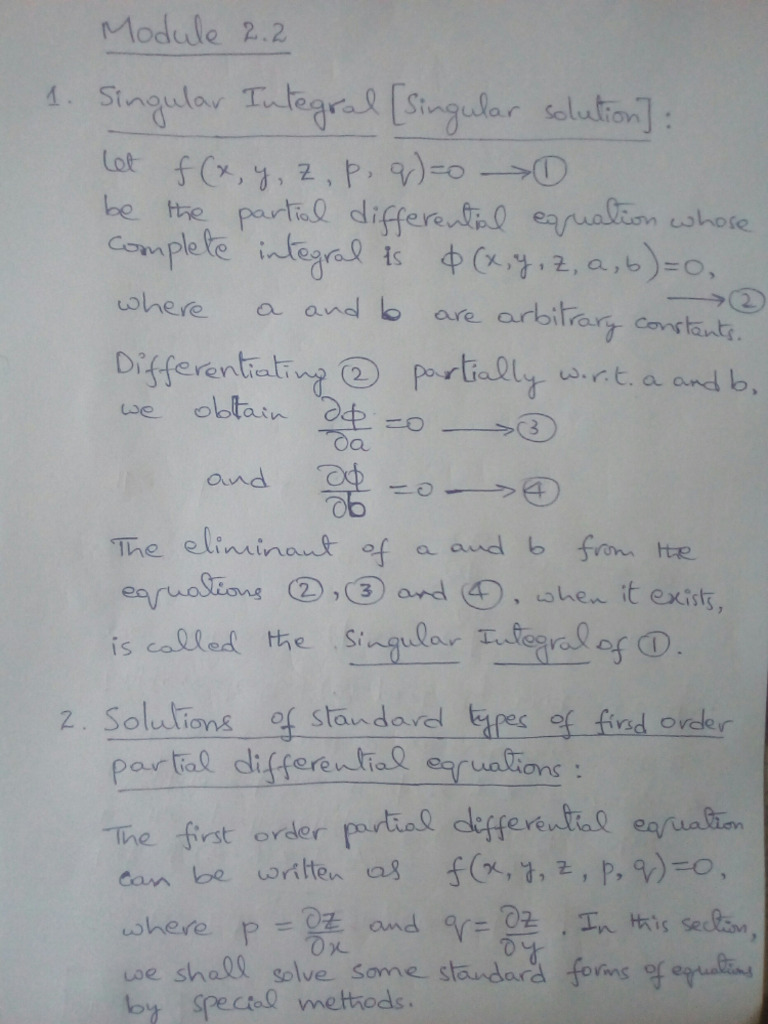 Module 2.2
1. Singular Integral [Singular solution]:
Let f(x, y, z, p, q)=0 ⟶①
be the partial differential equation whose
complete integral is ϕ(x, y, z, a, b)=0,
⟶②
where a and b are arbitrary constants.
Differentiating ② partially w.r.t. a and b,
we obtain ∂ϕ/∂a =0 ⟶③
and ∂ϕ/∂b =0 ⟶④
The eliminant of a and b from the
equations ②, ③ and ④, when it exists,
is called the Singular Integral of ①.
2. Solutions of standard types of firsd order
partial differential equations:
The first order partial differential equation
can be written as f(x, y, z, p, q)=0,
where p = ∂z/∂x and q = ∂z/∂y. In this section,
we shall solve some standard forms of equations
by special methods.